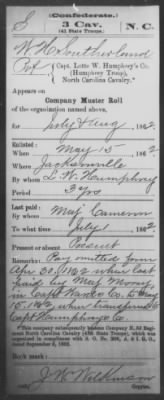 (Confederate.)
S. 3 Cav. N. C.
(41 State Troops.)
W. H. Southerland
Pvt Capt. Lotte W. Humphrey's Co.
(Humphrey Troop),
North Carolina Cavalry.
Appears on
Company Muster Roll
of the organization named above,
for July & Aug, 1862
Enlisted:
When May 15, 1862
Where Jacksonville
By whom L. W. Humphrey
Period 3 yrs
Last paid:
By whom Maj Cameron
To what time July 1, 1862
Present or absent Present
Remarks: Pay omitted from
Apr 30, 1862 when last
paid by Maj
in Capt Ward's Co. to May
15, 1862 when transferred to
Capt Humphrey Co.
This company subsequently became Company H, 3d Regiment
North Carolina Cavalry (41st State Troops), which was
organized in compliance with S. O. No.
dated September 3, 1862.
Book mark:
Copyist.